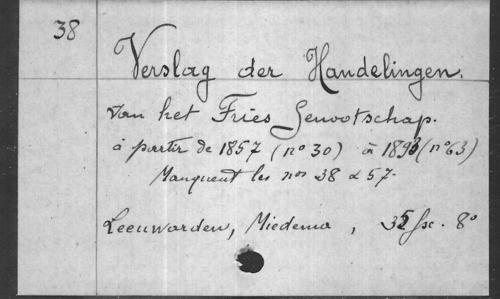 38
Verslag der Handelingen.
van het Fries Genootschap.
à partir de 1857 (nº 30) à 1893 (nº 63)
Manquent les nos 38 & 57.
Leeuwarden, Miedema, 35 fsc. 8º